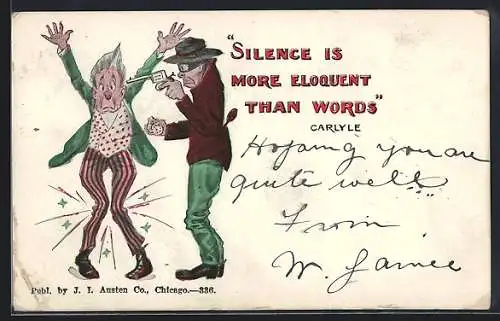 "SILENCE IS
MORE ELOQUENT
THAN WORDS"
CARLYLE
Hoping you are
quite well
From
W.
Publ. by J. I. Austen Co., Chicago.—336.